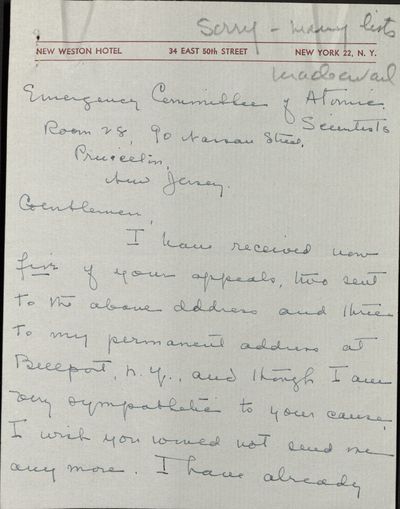 Sorry - many lists
NEW WESTON HOTEL 34 EAST 50th STREET NEW YORK 22, N. Y.
Emergency Committee of Atomic
Scientists
Room 28, 90 Nassau Street,
Princeton,
New Jersey.
Gentlemen,
I have received now
five of your appeals, two sent
to the above address and three
to my permanent address at
Bellport, N.Y., and though I am
very sympathetic to your cause,
I wish you would not send me
any more. I have already